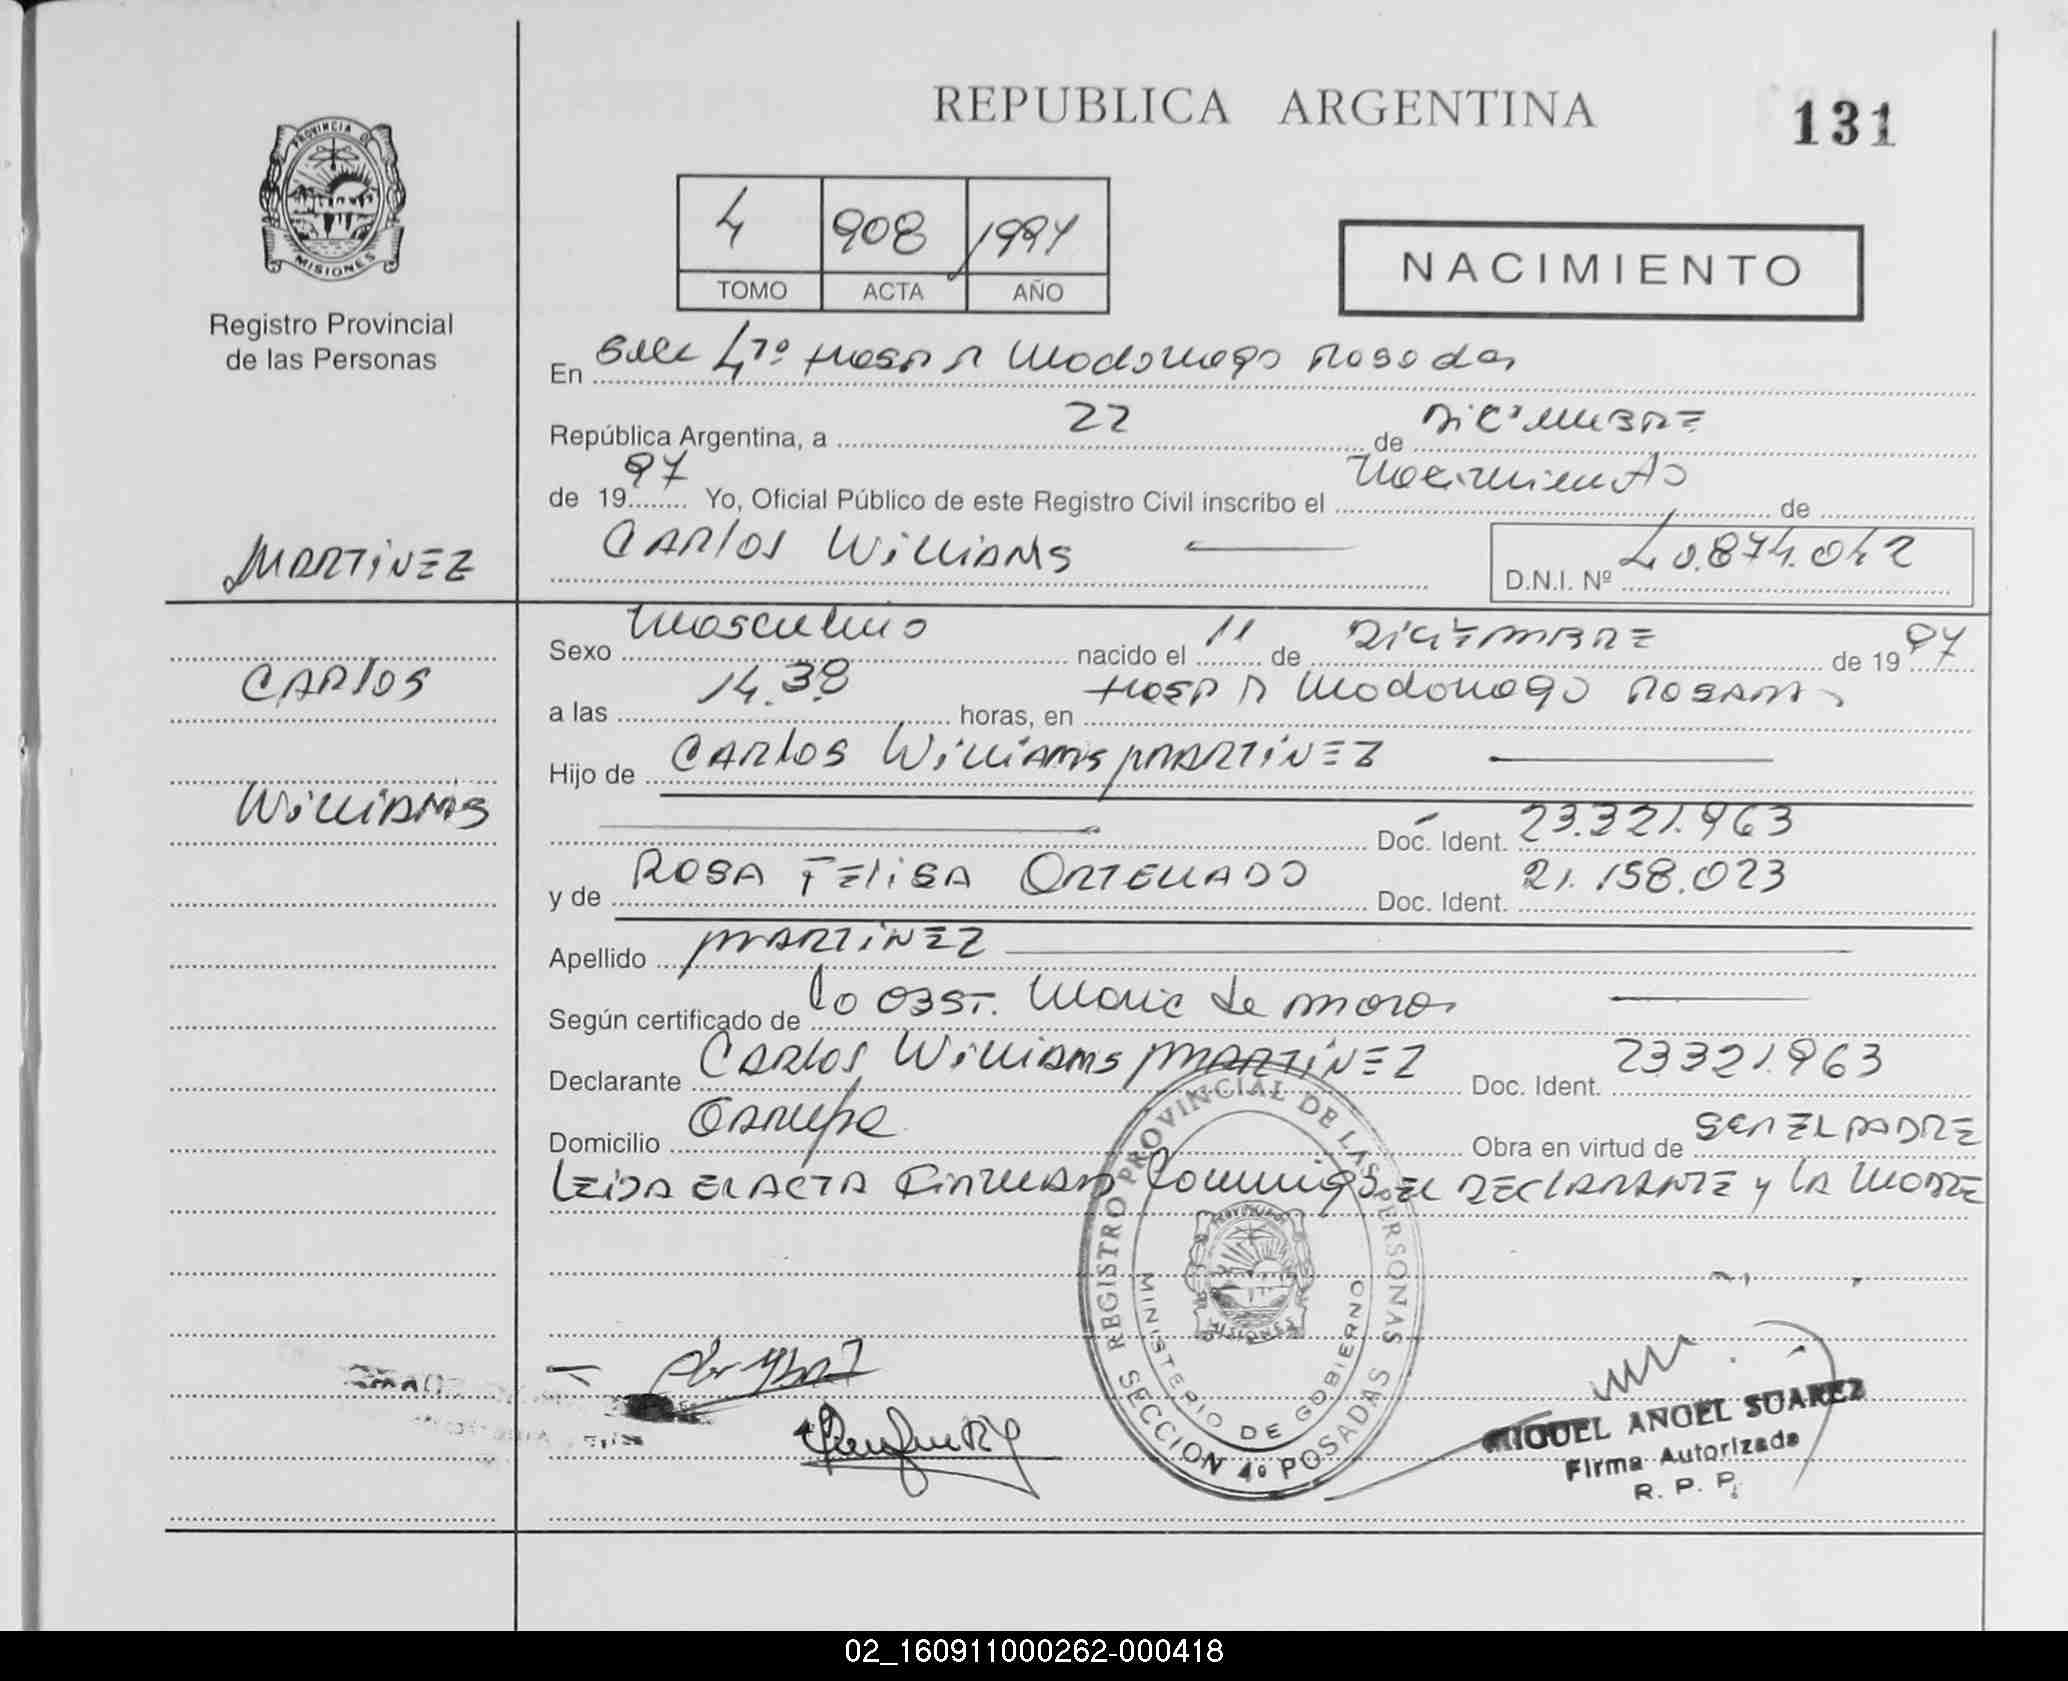 REPUBLICA ARGENTINA
131
PROVINCIA DE
MISIONES
Registro Provincial
de las Personas
4 908 1997
TOMO ACTA AÑO
NACIMIENTO
En Secc 4ta Hosp R Madariaga Posadas
República Argentina, a 22 de Diciembre
de 1997 Yo, Oficial Público de este Registro Civil inscribo el Nacimiento de
CARLOS WILLIAMS D.N.I. Nº 40.874.042
MARTINEZ
CARLOS
WILLIAMS
Sexo Masculino nacido el 11 de DICIEMBRE de 1997
a las 14.38 horas, en Hosp R Madariaga Posadas
Hijo de CARLOS WILLIAMS MARTINEZ
Doc. Ident. 23.321.963
y de ROSA FELISA ORTELLADO Doc. Ident. 21.158.023
Apellido MARTINEZ
Según certificado de la OBST. Maria de
Declarante CARLOS WILLIAMS MARTINEZ Doc. Ident. 23321.963
Domicilio Garupa Obra en virtud de SER EL PADRE
LEIDA EL ACTA FIRMAN Conmigo EL DECLARANTE y LA MADRE
REGISTRO PROVINCIAL DE LAS PERSONAS
MINISTERIO DE GOBIERNO
PROVINCIA DE
MISIONES
SECCION 4º POSADAS
MIGUEL ANGEL SUAREZ
Firma Autorizada
R. P. P.
02_160911000262-000418